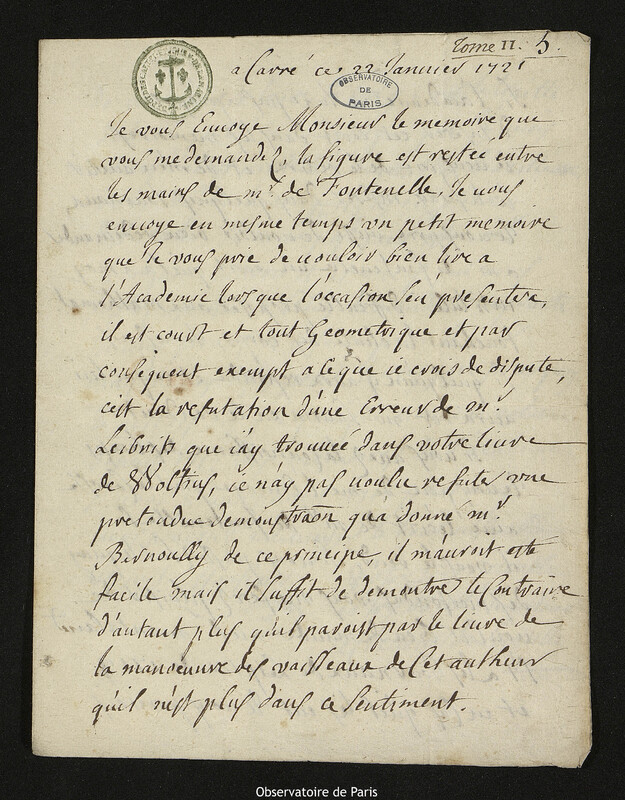 Tome II. 5.
a Carré ce 22 Janvier 1721
OBSERVATOIRE
DE
PARIS
Je vous Envoye Monsieur le memoire que
vous me demandez, la figure est restée entre
les mains de mr. de Fontenelle, Je vous
envoye en mesme temps un petit memoire
que Je vous prie de vouloir bien lire a
l'Academie lorsque l'occasion s'en presentera,
il est court et tout Geometrique et par
consequent exempt a ce que ie crois de dispute,
c'est la refutation d'une Erreur de mr.
Leibnits que i'ay trouvée dans votre livre
de Wolfius, ie n'ay pas voulu refuter une
pretendue demonstraon qu'a donné mr.
Bernoully de ce principe, il m'auroit esté
facile mais il suffit de demontrer le Contraire
d'autant plus qu'il paroist par le livre de
la manoeuvre des vaisseaux de Cet autheur
qu'il n'est plus dans ce sentiment.
Observatoire de Paris